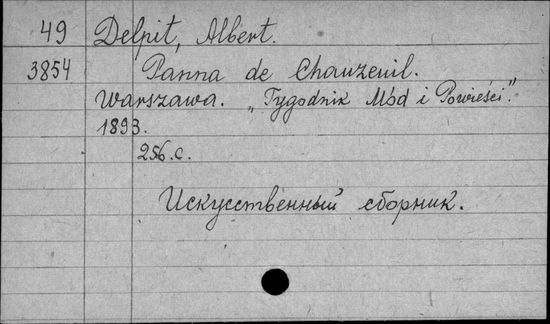 49 Delpit, Albert.
3854 Panna de Chauzeuil.
Warszawa. „Tygodnik Mód i Powieści".
1893.
256.c.
Искусственный сборник.